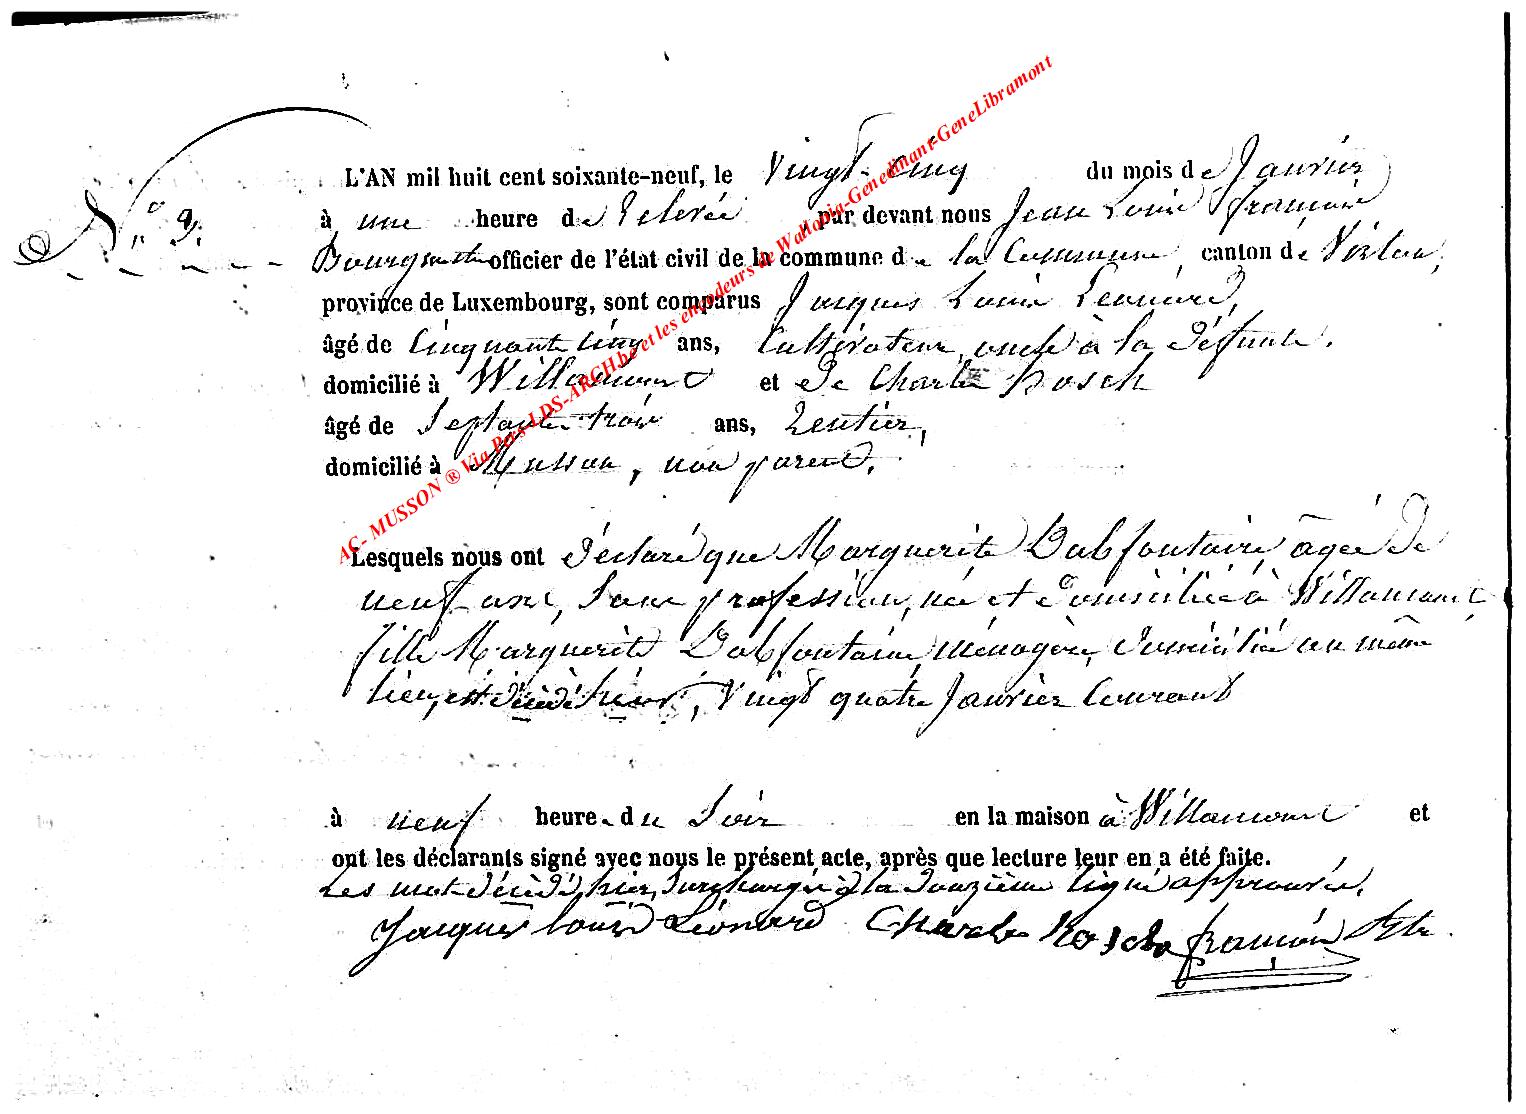 AC- MUSSON ® Via Pers-LDS-ARCH.be et les encodeurs de Wallonia-Genedinant-GeneLibramont
L'AN mil huit cent soixante-neuf, le Vingt-Cinq du mois de Janvier
N° 9. à une heure de relevée, par devant nous Jean Louis françois
Bourgmestre officier de l'état civil de la commune de la Commune, canton de Virton,
province de Luxembourg, sont comparus Jacques Louis Léonard,
âgé de Cinquante cinq ans, Cultivateur, oncle à la défunte.
domicilié à Willancourt et de Charles Rosch
âgé de Septante-trois ans, Rentier,
domicilié à Musson, non parent.
Lesquels nous ont déclaré que Marguerite Dabfontaine, âgée de
neuf ans, Sans profession, née et domiciliée à Willancourt
fille Marguerite Dabfontaine, ménagère, domiciliée au même
lieu, est décédé hier, Vingt quatre Janvier Courant
à neuf heures du Soir en la maison à Willancourt et
ont les déclarants signé avec nous le présent acte, après que lecture leur en a été faite.
Les mots décédé, hier, Surchargés à la douzième ligne approuvés.
Jacques louis Léonard Charles Rosch françois